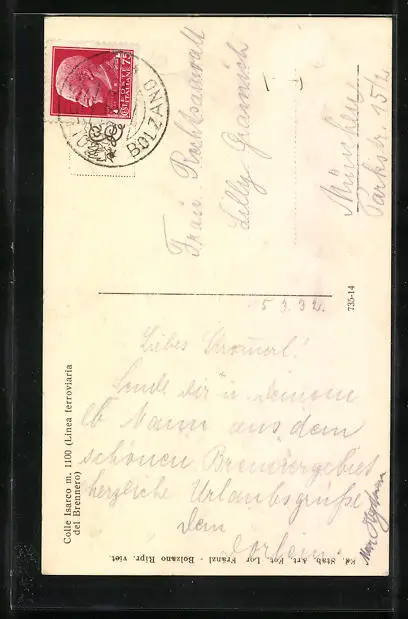 POSTE ITALIANE
75
BOLZANO
Frau Rechtsanwalt
Lilly
München
Parkstr. 15/2
735-14
5.3.32.
Liebes
Sende Dir u. Deinem
lb Mann aus dem
schönen Brennergebiet
herzliche Urlaubsgrüße
Dem
Colle Isarco m. 1100 (Linea ferroviaria
del Brennero)
Ed. Stab. Art. Fot. Lor. Fränzl - Bolzano Ripr. viet.